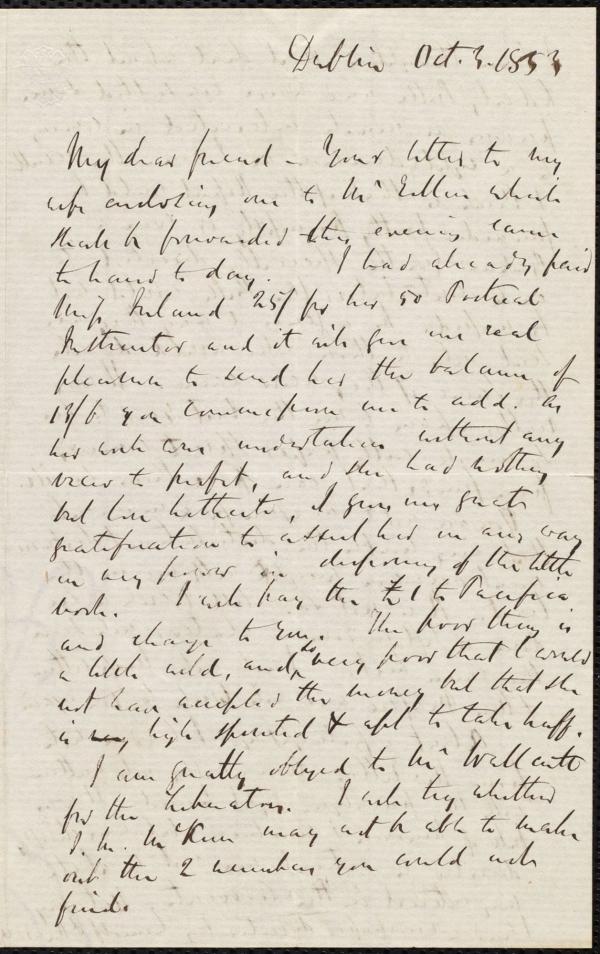 Dublin Oct. 3. 1853
My dear friend - Your letter to my
wife enclosing one to Mr Estlin which
shall be forwarded this evening came
to hand to day. I had already paid
Miss Ireland 25/ for her 50 Poetical
Instructor and it will give me real
pleasure to send her the balance of
13/6 you commission me to add. As
her work was undertaken without any
view to profit, and she had nothing
but loss hitherto, it gives me great
gratification to assist her in any way
in my power in disposing of the little
book. I will pay the £1 to Pacifica
and charge to you. The poor thing is
a little wild, and so very poor that I would
not have accepted the money but that she
is very high spirited & apt to take huff.
I am greatly obliged to Mr Wallcutt
for the Liberators. I will try whether
J. M. McKim may not be able to make
out the 2 numbers you could not
find.